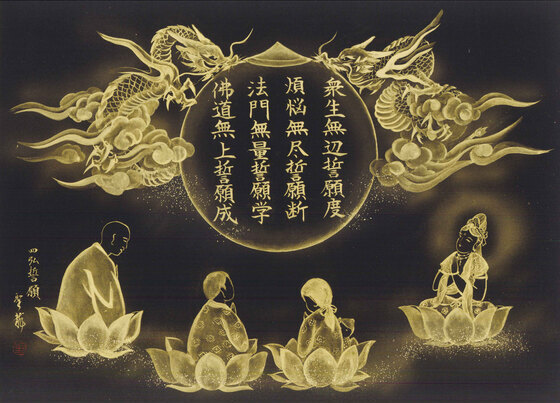 衆生無辺誓願度
煩悩無尽誓願断
法門無量誓願学
佛道無上誓願成
四弘誓願